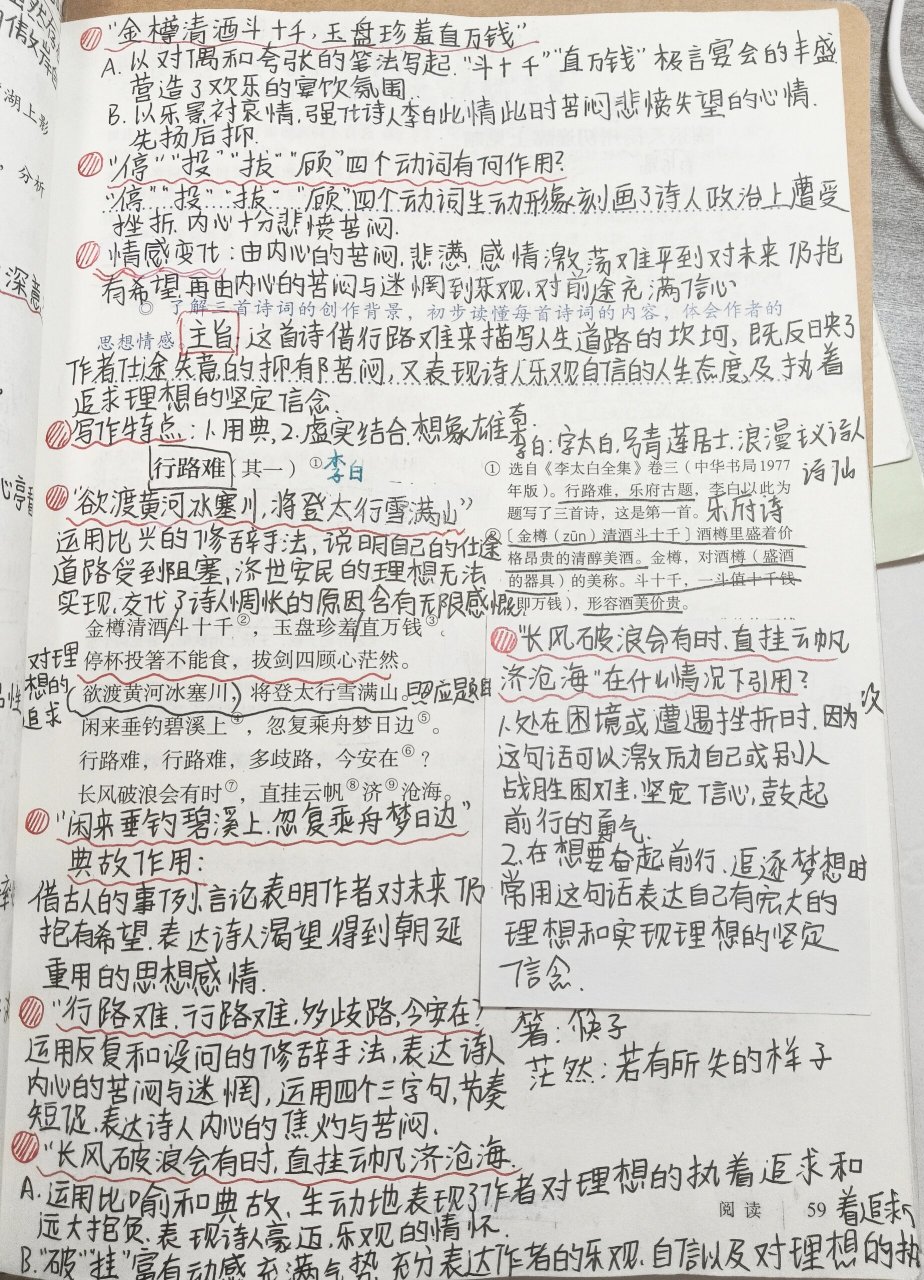 "金樽清酒斗十千，玉盘珍羞直万钱"
A. 以对偶和夸张的笔法写起."斗十千""直万钱"极言宴会的丰盛
营造了欢乐的宴饮氛围.
B. 以乐景衬哀情,强化诗人李白此情此时苦闷悲愤失望的心情.
先扬后抑.
"停""投""拔""顾"四个动词有何作用?
"停""投""拔""顾"四个动词生动形象刻画了诗人政治上遭受
挫折.内心十分悲愤苦闷.
情感变化:由内心的苦闷.悲懑.感情激荡难平到对未来仍抱
有希望.再由内心的苦闷与迷惘到乐观.对前途充满信心
◎ 了解三首诗词的创作背景，初步读懂每首诗词的内容，体会作者的
思想情感
主旨:这首诗借行路难来描写人生道路的坎坷,既反映了
作者仕途失意的抑郁苦闷,又表现诗人乐观自信的人生态度及执着
追求理想的坚定信念.
写作特点:1.用典,2.虚实结合.想象雄奇
李白:字太白,号青莲居士,浪漫主义诗人
诗仙
行路难(其一)①李白
① 选自《李太白全集》卷三（中华书局1977
年版）。行路难，乐府古题，李白以此为
题写了三首诗，这是第一首。乐府诗
"欲渡黄河冰塞川,将登太行雪满山"
运用比兴的修辞手法,说明自己的仕途
道路受到阻塞,济世安民的理想无法
实现.交代了诗人惆怅的原因含有无限感慨
②［金樽（zūn）清酒斗十千］酒樽里盛着价
格昂贵的清醇美酒。金樽，对酒樽（盛酒
的器具）的美称。斗十千，一斗值十千钱
（即万钱），形容酒美价贵。
金樽清酒/斗十千②，玉盘珍羞/直万钱③。
停杯投箸不能食，拔剑四顾心茫然。
欲渡黄河冰塞川，将登太行雪满山。照应题目
对理
想的
追求
闲来垂钓碧溪上④，忽复乘舟梦日边⑤。
行路难，行路难，多歧路，今安在⑥？
长风破浪会有时⑦，直挂云帆⑧济⑨沧海。
"长风破浪会有时.直挂云帆
济沧海"在什么情况下引用?
1.处在困境或遭遇挫折时.因为
这句话可以激励自己或别人
战胜困难.坚定信心,鼓起
前行的勇气.
2.在想要奋起前行.追逐梦想时
常用这句话表达自己有宏大的
理想和实现理想的坚定
信念.
"闲来垂钓碧溪上.忽复乘舟梦日边"
典故作用:
借古人的事例.言论表明作者对未来仍
抱有希望.表达诗人渴望得到朝延
重用的思想感情.
"行路难.行路难,多歧路,今安在?
运用反复和设问的修辞手法,表达诗人
内心的苦闷与迷惘,运用四个三字句,节奏
短促.表达诗人内心的焦灼与苦闷.
箸:筷子
茫然:若有所失的样子
"长风破浪会有时,直挂云帆济沧海.
A.运用比喻和典故.生动地表现了作者对理想的执着追求和
远大抱负.表现诗人豪迈.乐观的情怀.
阅读 59
B."破""挂"富有动感.充满气势.充分表达作者的乐观.自信以及对理想的执
着追求